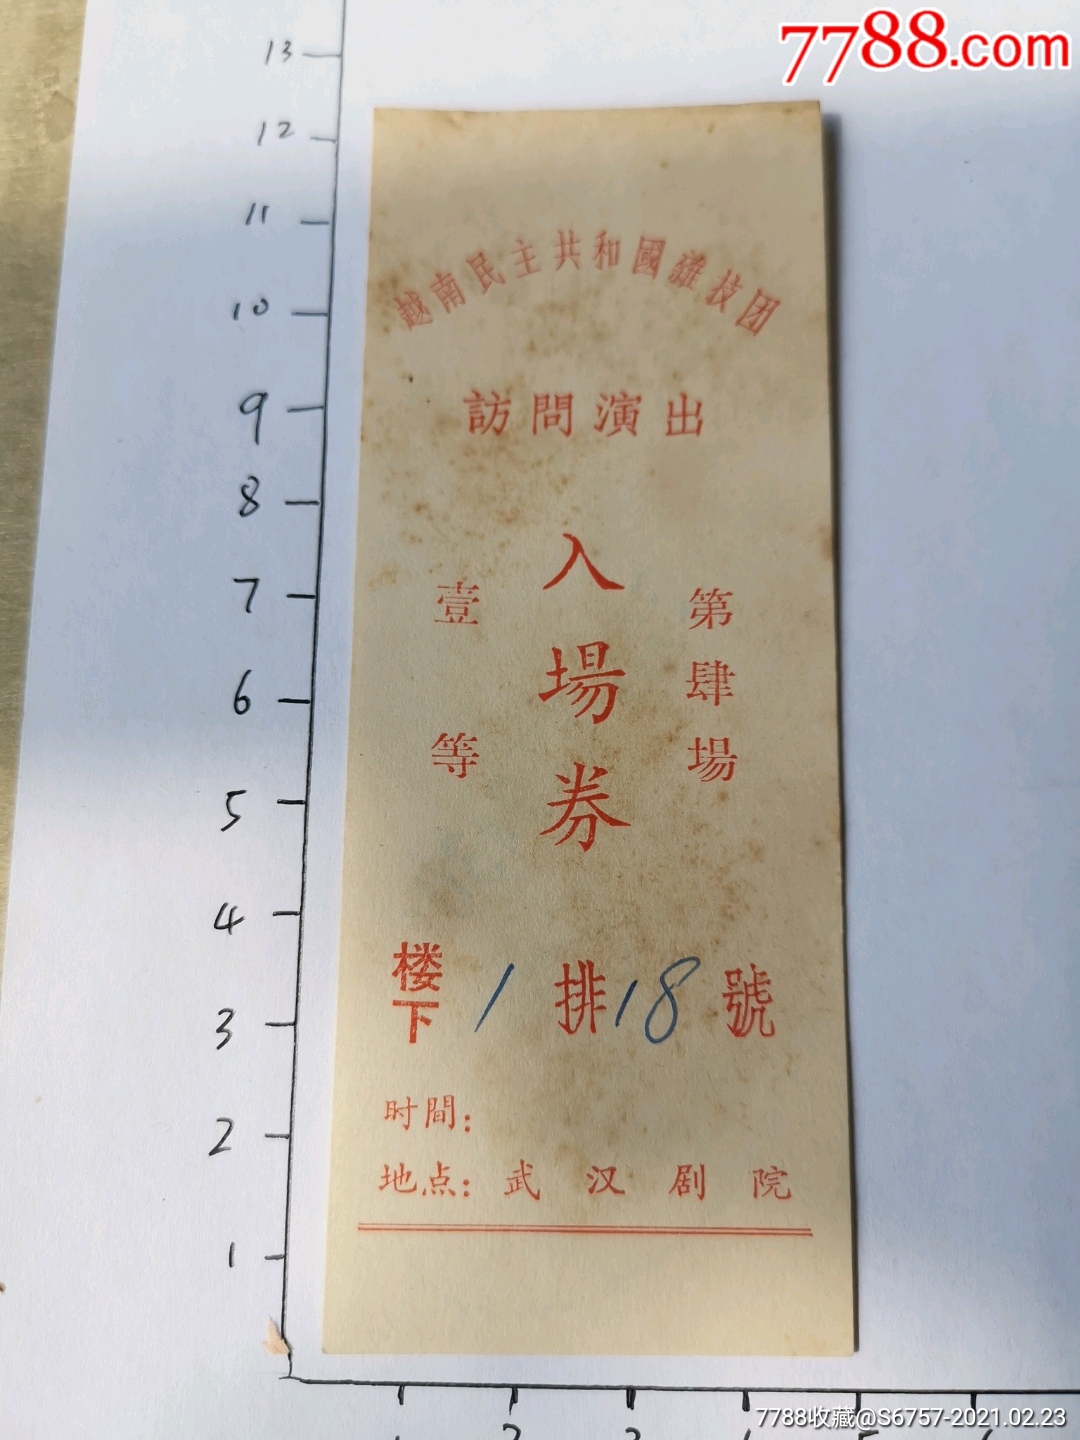 7788.com
越南民主共和國雜技团
訪問演出
第肆場
入場券
壹等
楼下 1 排 18 號
时間:
地点: 武汉剧院
13
12
11
10
9
8
7
6
5
4
3
2
1
7788收藏@S6757-2021.02.23